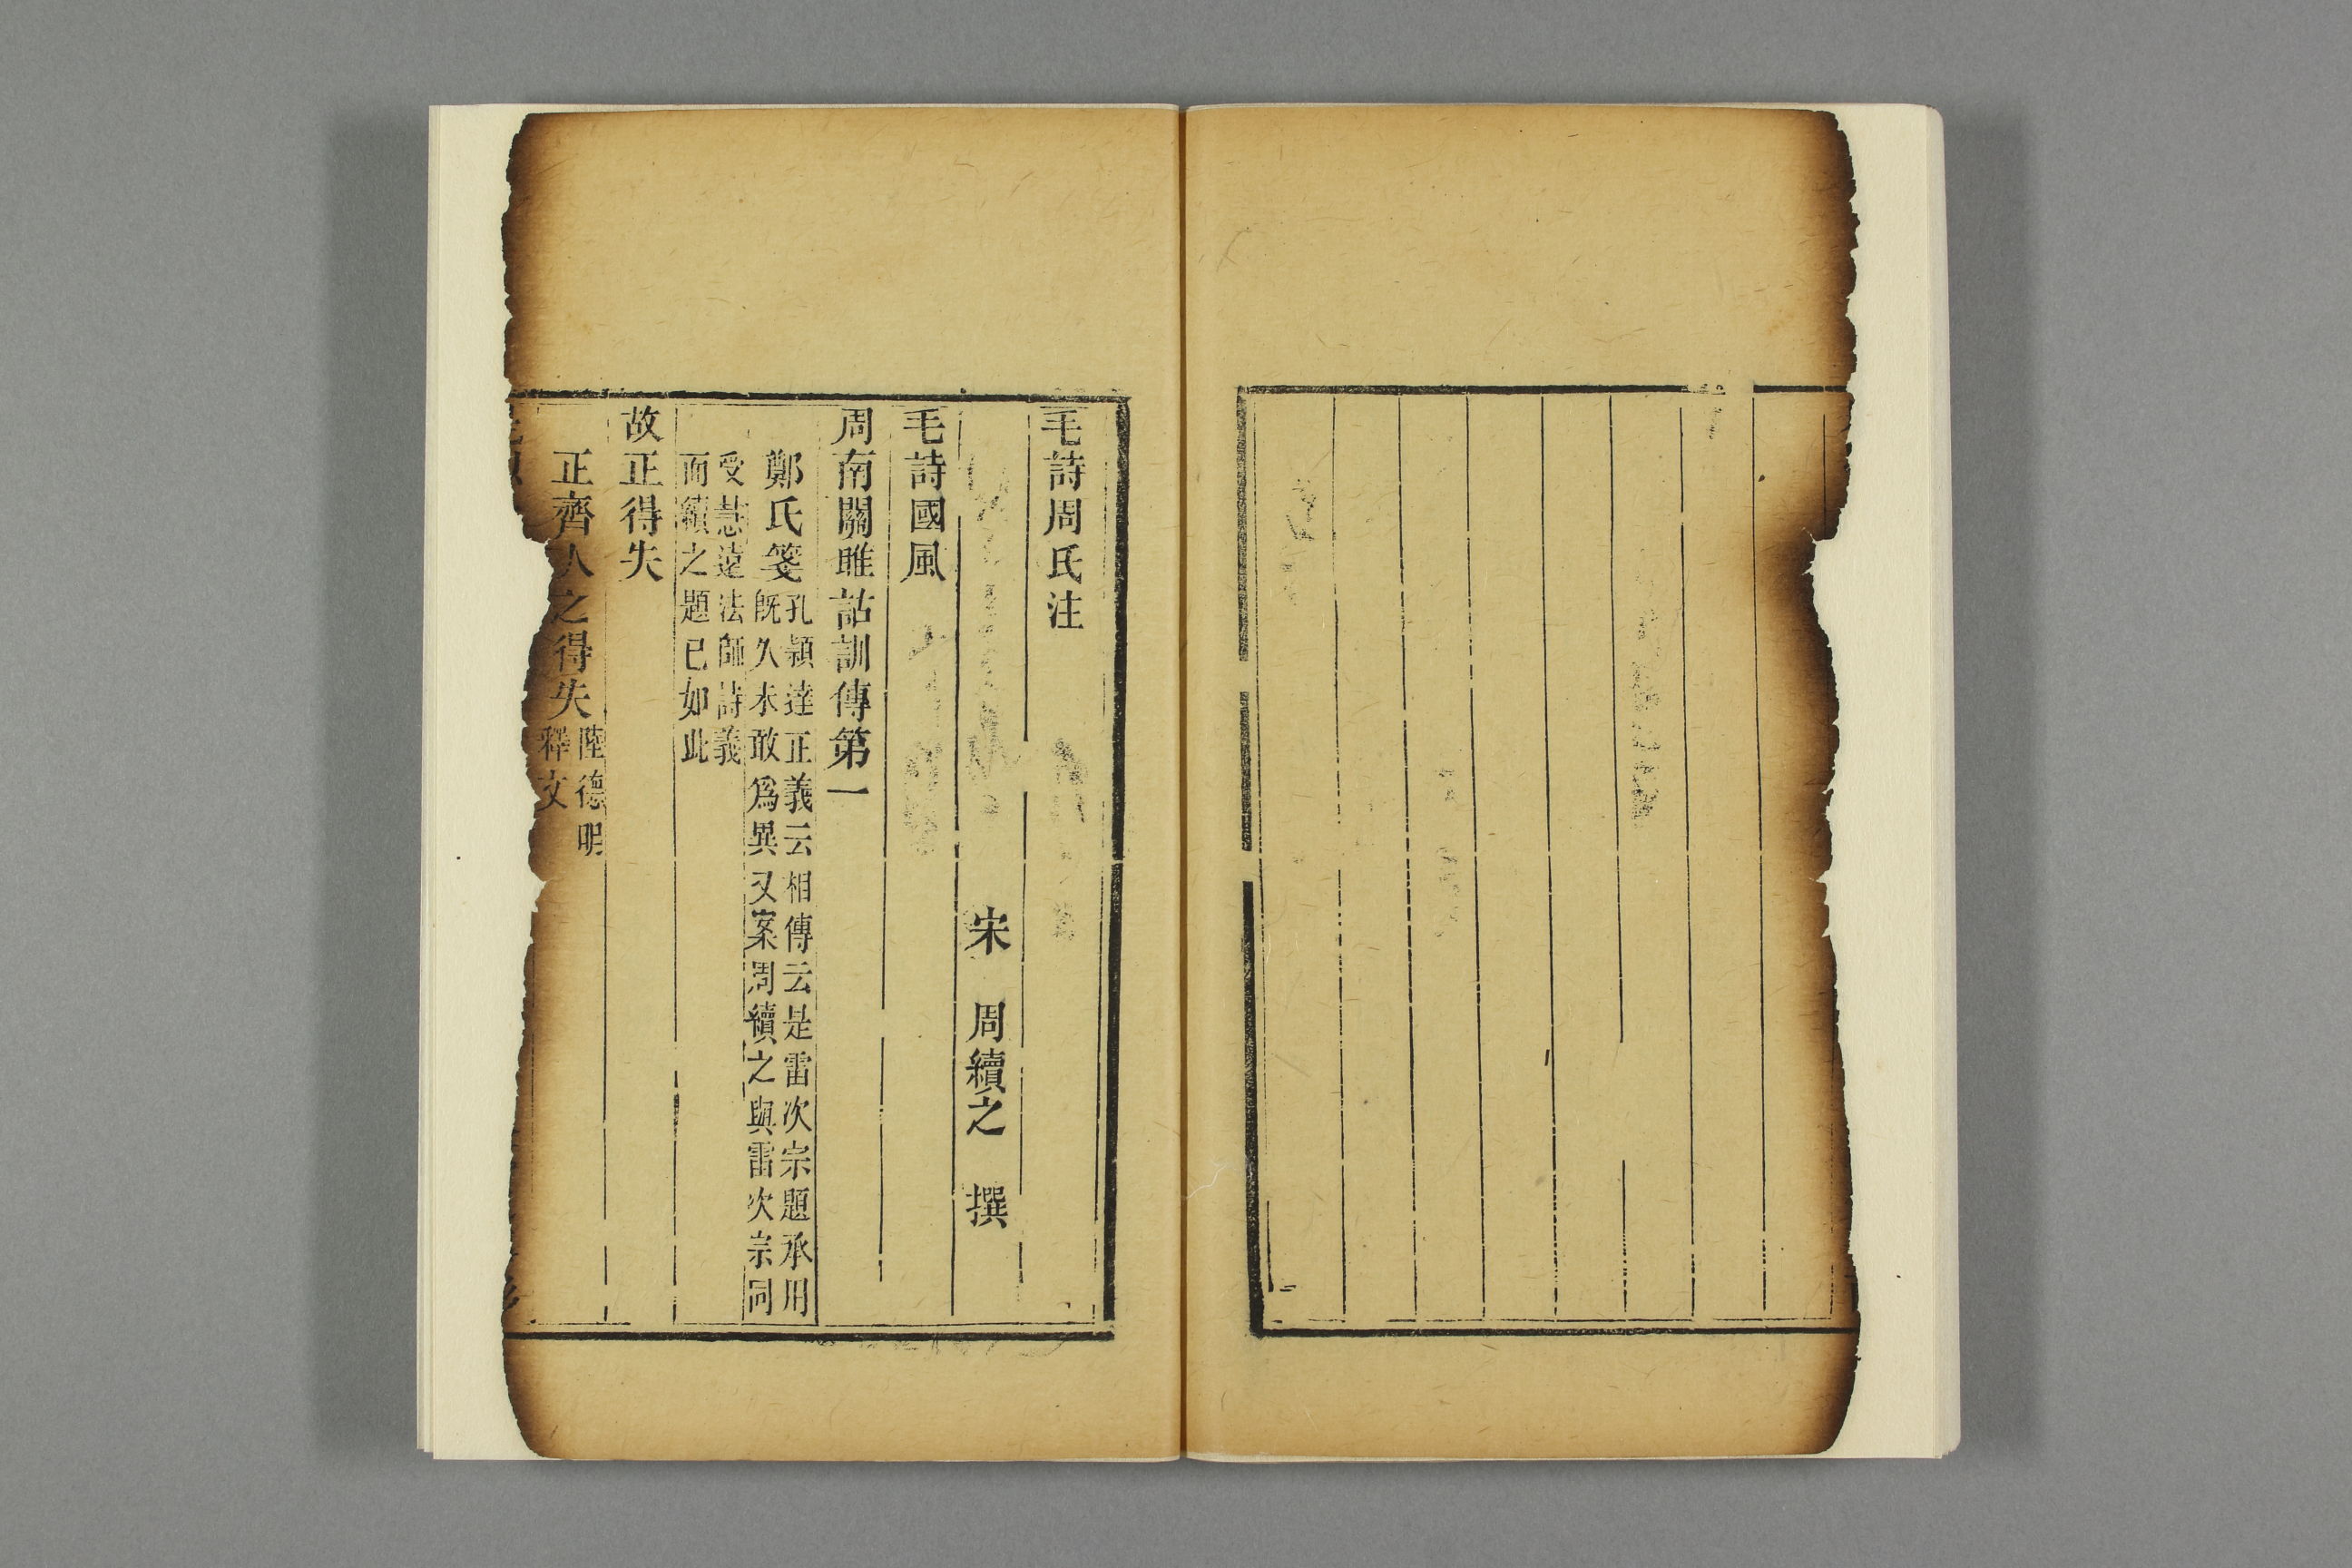 毛詩周氏注
宋 周續之 撰
毛詩國風
周南關雎詁訓傳第一
鄭氏箋
孔穎達正義云相傳云是雷次宗題承用
旣久木敢爲異又案周續之與雷次宗同
受慧遠法師詩義
而續之題已如此
故正得失
正齊人之得失
陸德明
釋文